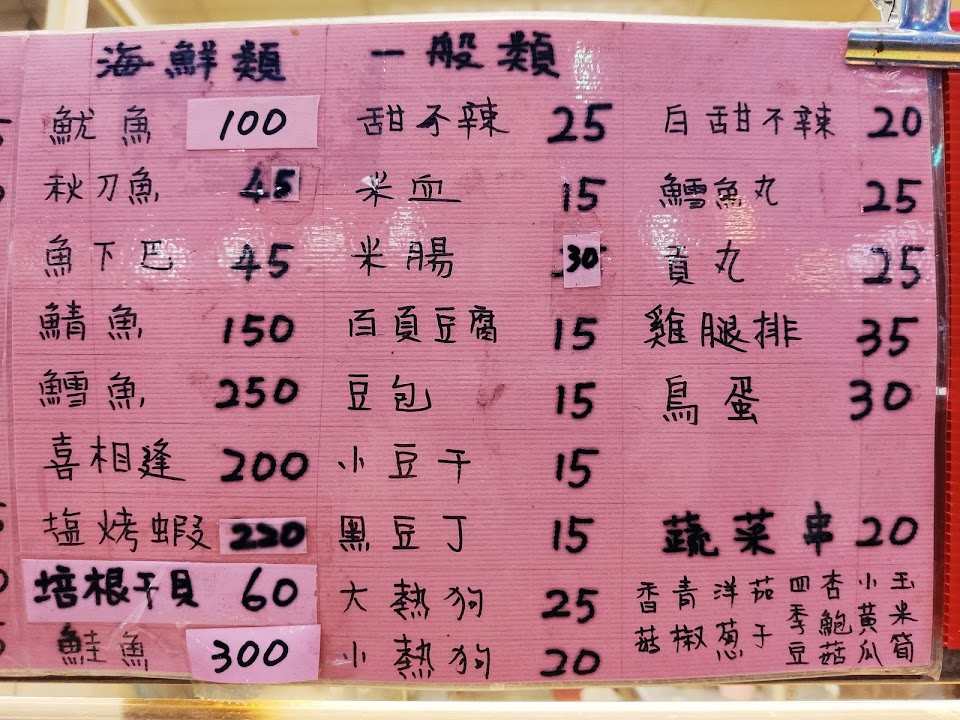 海鮮類
魷魚 100
秋刀魚 45
魚下巴 45
鯖魚 150
鱈魚 250
喜相逢 200
塩烤蝦 220
培根干貝 60
鮭魚 300
一般類
甜不辣 25
米血 15
米腸 30
百頁豆腐 15
豆包 15
小豆干 15
黑豆丁 15
大熱狗 25
小熱狗 20
白甜不辣 20
鱈魚丸 25
貢丸 25
雞腿排 35
鳥蛋 30
蔬菜串 20
香菇
青椒
洋蔥
茄子
四季豆
杏鮑菇
小黃瓜
玉米筍